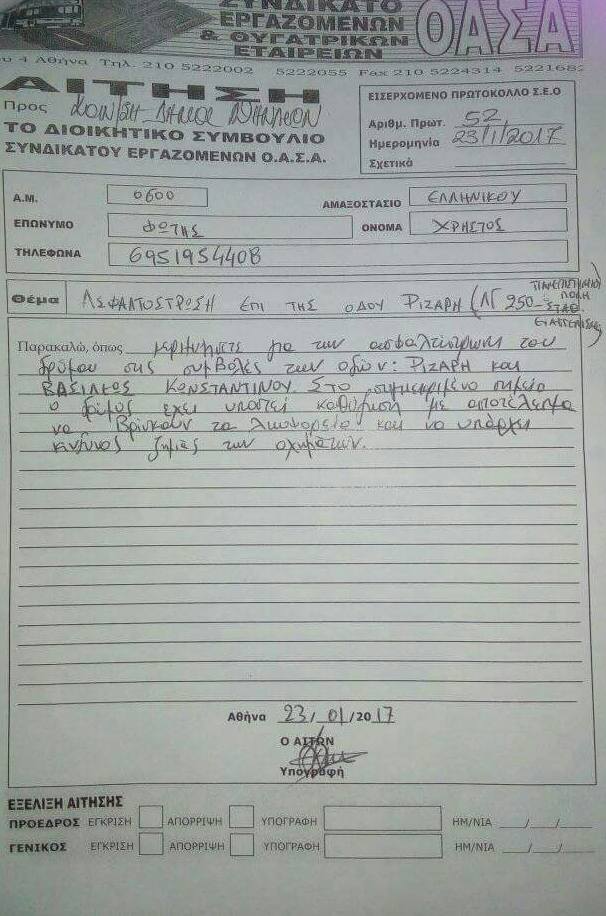 ΣΥΝΔΙΚΑΤΟ
ΕΡΓΑΖΟΜΕΝΩΝ
& ΘΥΓΑΤΡΙΚΩΝ
ΕΤΑΙΡΕΙΩΝ
ΟΑΣΑ
4 Αθήνα Τηλ. 210 5222002 5222055 Fax 210 5224314 522168
ΑΙΤΗΣΗ
Προς ΚΟΙΝ/ΣΗ-ΔΗΜΟΣ ΑΘΗΝΑΙΩΝ
ΤΟ ΔΙΟΙΚΗΤΙΚΟ ΣΥΜΒΟΥΛΙΟ
ΣΥΝΔΙΚΑΤΟΥ ΕΡΓΑΖΟΜΕΝΩΝ Ο.Α.Σ.Α.
ΕΙΣΕΡΧΟΜΕΝΟ ΠΡΩΤΟΚΟΛΛΟ Σ.Ε.Ο
Αριθμ. Πρωτ. 52
Ημερομηνία 23/1/2017
Σχετικά
Α.Μ. 0600 ΑΜΑΞΟΣΤΑΣΙΟ ΕΛΛΗΝΙΚΟΥ
ΕΠΩΝΥΜΟ ΦΩΤΗΣ ΟΝΟΜΑ ΧΡΗΣΤΟΣ
ΤΗΛΕΦΩΝΑ 6951954408
Θέμα ΑΣΦΑΛΤΟΣΤΡΟΣΗ ΕΠΙ ΤΗΣ ΟΔΟΥ ΡΙΖΑΡΗ (ΛΓ 250- ΠΑΝΕΠΙΣΤΗΜΙΟ
ΠΟΛΗ
ΣΤΑΘ.
ΕΥΑΓΓΕΛΙΣΜΟΣ)
Παρακαλώ, όπως μεριμνήσετε για την ασφαλτόστρωση του
δρόμου στις συμβολές των οδών: ΡΙΖΑΡΗ και
ΒΑΣΙΛΕΩΣ ΚΩΝΣΤΑΝΤΙΝΟΥ. Στο συγκεκριμένο σημείο
ο δρόμος έχει υποστεί καθίζηση με αποτέλεσμα
να βρίσκουν τα λεωφορεία και να υπάρχει
κίνδυνος ζημιάς των οχημάτων.
Αθήνα 23/01/2017
Ο ΑΙΤΩΝ
Υπογραφή
ΕΞΕΛΙΞΗ ΑΙΤΗΣΗΣ
ΠΡΟΕΔΡΟΣ ΕΓΚΡΙΣΗ ΑΠΟΡΡΙΨΗ ΥΠΟΓΡΑΦΗ ΗΜ/ΝΙΑ __/__/__
ΓΕΝΙΚΟΣ ΕΓΚΡΙΣΗ ΑΠΟΡΡΙΨΗ ΥΠΟΓΡΑΦΗ ΗΜ/ΝΙΑ __/__/__